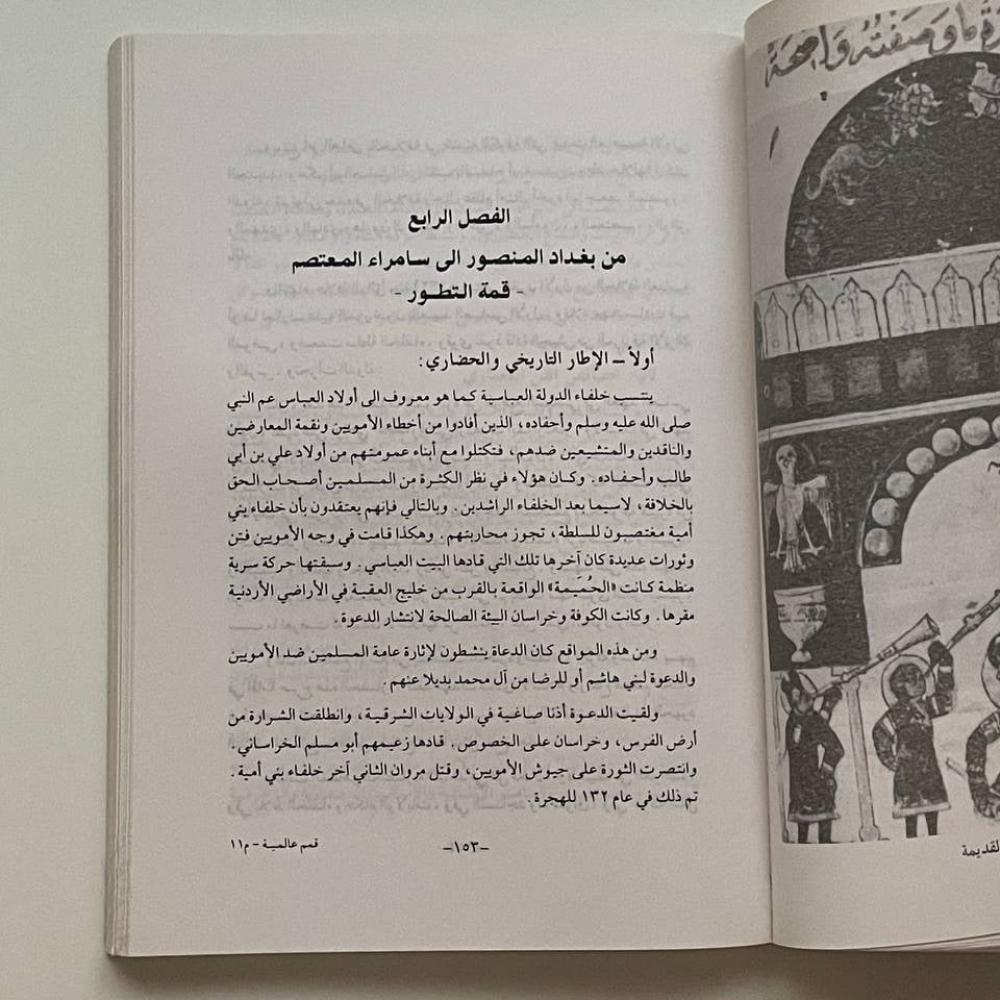 الفصل الرابع
من بغداد المنصور الى سامراء المعتصم
- قمة التطور -
أولاً – الإطار التاريخي والحضاري :
ينتسب خلفاء الدولة العباسية كما هو معروف الى أولاد العباس عم النبي
صلى الله عليه وسلم وأحفاده، الذين أفادوا من أخطاء الأمويين ونقمة المعارضين
والناقدين والمتشيعين ضدهم، فتكتلوا مع أبناء عمومتهم من أولاد علي بن أبي
طالب وأحفاده. وكان هؤلاء في نظر الكثرة من المسلمين أصحاب الحق
بالخلافة، لاسيما بعد الخلفاء الراشدين. وبالتالي فإنهم يعتقدون بأن خلفاء بني
أمية مغتصبون للسلطة، تجوز محاربتهم. وهكذا قامت في وجه الأمويين فتن
وثورات عديدة كان آخرها تلك التي قادها البيت العباسي. وسبقتها حركة سرية
منظمة كانت «الحُمَيمة» الواقعة بالقرب من خليج العقبة في الأراضي الأردنية
مقرها. وكانت الكوفة وخراسان البيئة الصالحة لانتشار الدعوة.
ومن هذه المواقع كان الدعاة ينشطون لإثارة عامة المسلمين ضد الأمويين
والدعوة لبني هاشم أو للرضا من آل محمد بديلا عنهم.
ولقيت الدعوة أذنا صاغية في الولايات الشرقية، وانطلقت الشرارة من
أرض الفرس، وخراسان على الخصوص. قادها زعيمهم أبو مسلم الخراساني.
وانتصرت الثورة على جيوش الأمويين، وقتل مروان الثاني آخر خلفاء بني أمية.
تم ذلك في عام ١٣٢ للهجرة.
–١٥٣–
قمم عالمية - م١١
وصفته واضحة
القديمة